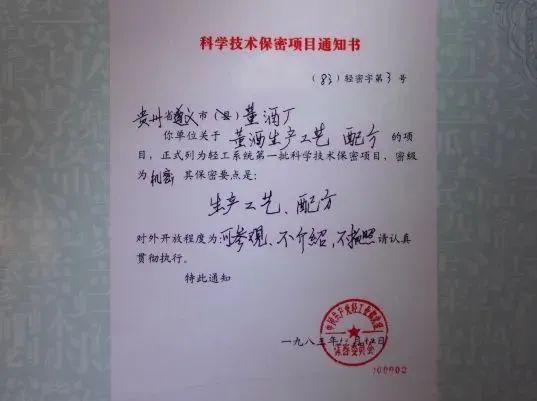 科学技术保密项目通知书
(83)轻密字第3号
贵州省遵义市(县)董酒厂
你单位关于董酒生产工艺 配方的项
目，正式列为轻工系统第一批科学技术保密项目，密级
为机密 其保密要点是：
生产工艺、配方
对外开放程度为：可参观、不介绍，不拍照 请认真
贯彻执行。
特此通知
中国共产党轻工业部党组
保密委员会
一九八三年
月
日